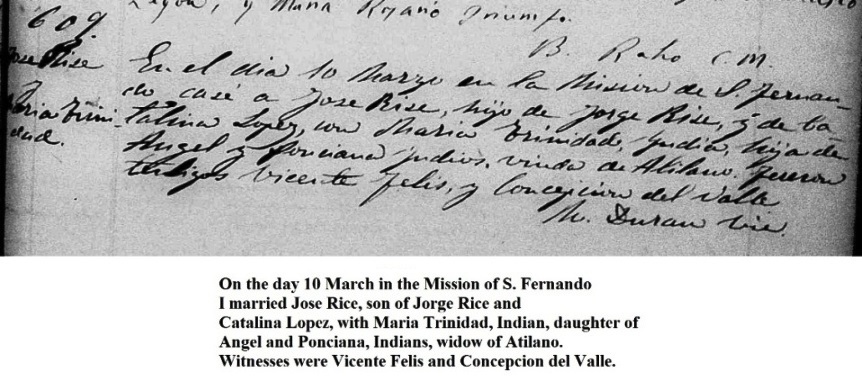 y Maria Rojano Triumfo.
609.
B. Raho C.M.
Jose Rise
y
Maria Trini-
dad.
En el dia 10 Marzo en la Mision de S. Fernan-
do casé a Jose Rise, hijo de Jorge Rise, y de Ca-
talina Lopez, con Maria Trinidad, Yndia, hija de
Angel y Ponciana Yndios, viuda de Atilano. Fueron
testigos Vicente Felis, y Concepcion del Valle
N. Duran
On the day 10 March in the Mission of S. Fernando
I married Jose Rice, son of Jorge Rice and
Catalina Lopez, with Maria Trinidad, Indian, daughter of
Angel and Ponciana, Indians, widow of Atilano.
Witnesses were Vicente Felis and Concepcion del Valle.